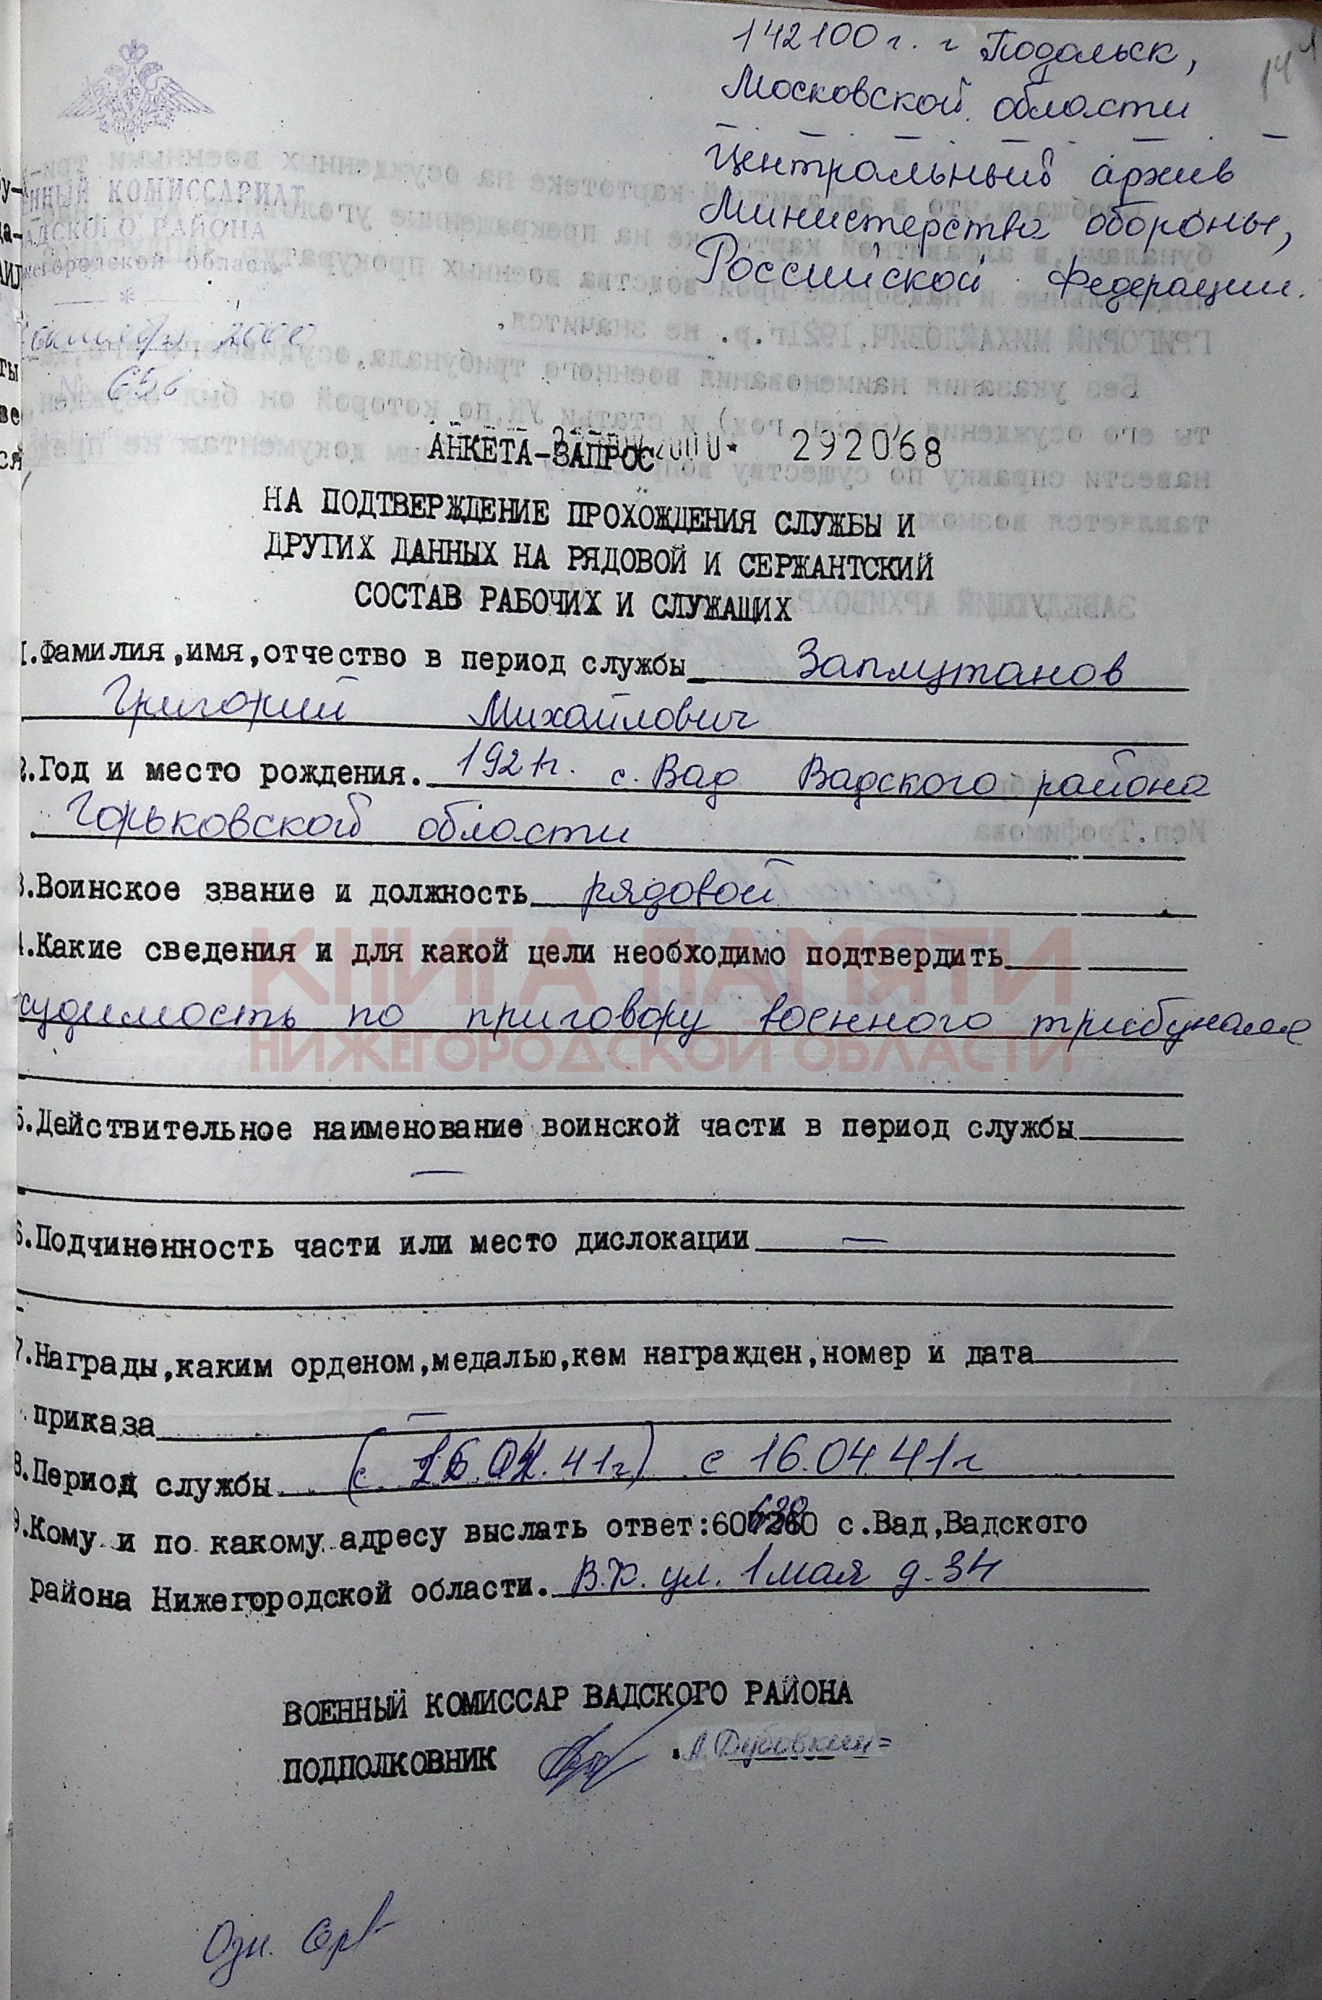 142100 г. г Подольск,
Московской области
Центральный архив
Министерства обороны,
Российской Федерации.
144
ННЫЙ КОМИССАРИАТ
АДСКОГО РАЙОНА
жегородской облас
2000
АНКЕТА-ЗАПРОС
2000* 292068
НА ПОДТВЕРЖДЕНИЕ ПРОХОЖДЕНИЯ СЛУЖБЫ И
ДРУГИХ ДАННЫХ НА РЯДОВОЙ И СЕРЖАНТСКИЙ
СОСТАВ РАБОЧИХ И СЛУЖАЩИХ
1.Фамилия,имя,отчество в период службы Заплутанов
Григорий Михайлович
2.Год и место рождения. 1921г. с. Вад Вадского района
Горьковской области
3.Воинское звание и должность рядовой
4.Какие сведения и для какой цели необходимо подтвердить
судимость по приговору военного трибунала
КНИГА ПАМЯТИ
НИЖЕГОРОДСКОЙ ОБЛАСТИ
5.Действительное наименование воинской части в период службы
—
6.Подчиненность части или место дислокации —
7.Награды,каким орденом,медалью,кем награжден,номер и дата
приказа —
8.Период службы (с 16.04.41г) с 16.04.41г
9.Кому и по какому адресу выслать ответ: с.Вад,Вадского
района Нижегородской области. В.К. ул. 1 мая д. 34
ВОЕННЫЙ КОМИССАР ВАДСКОГО РАЙОНА
ПОДПОЛКОВНИК А. Дубовкин